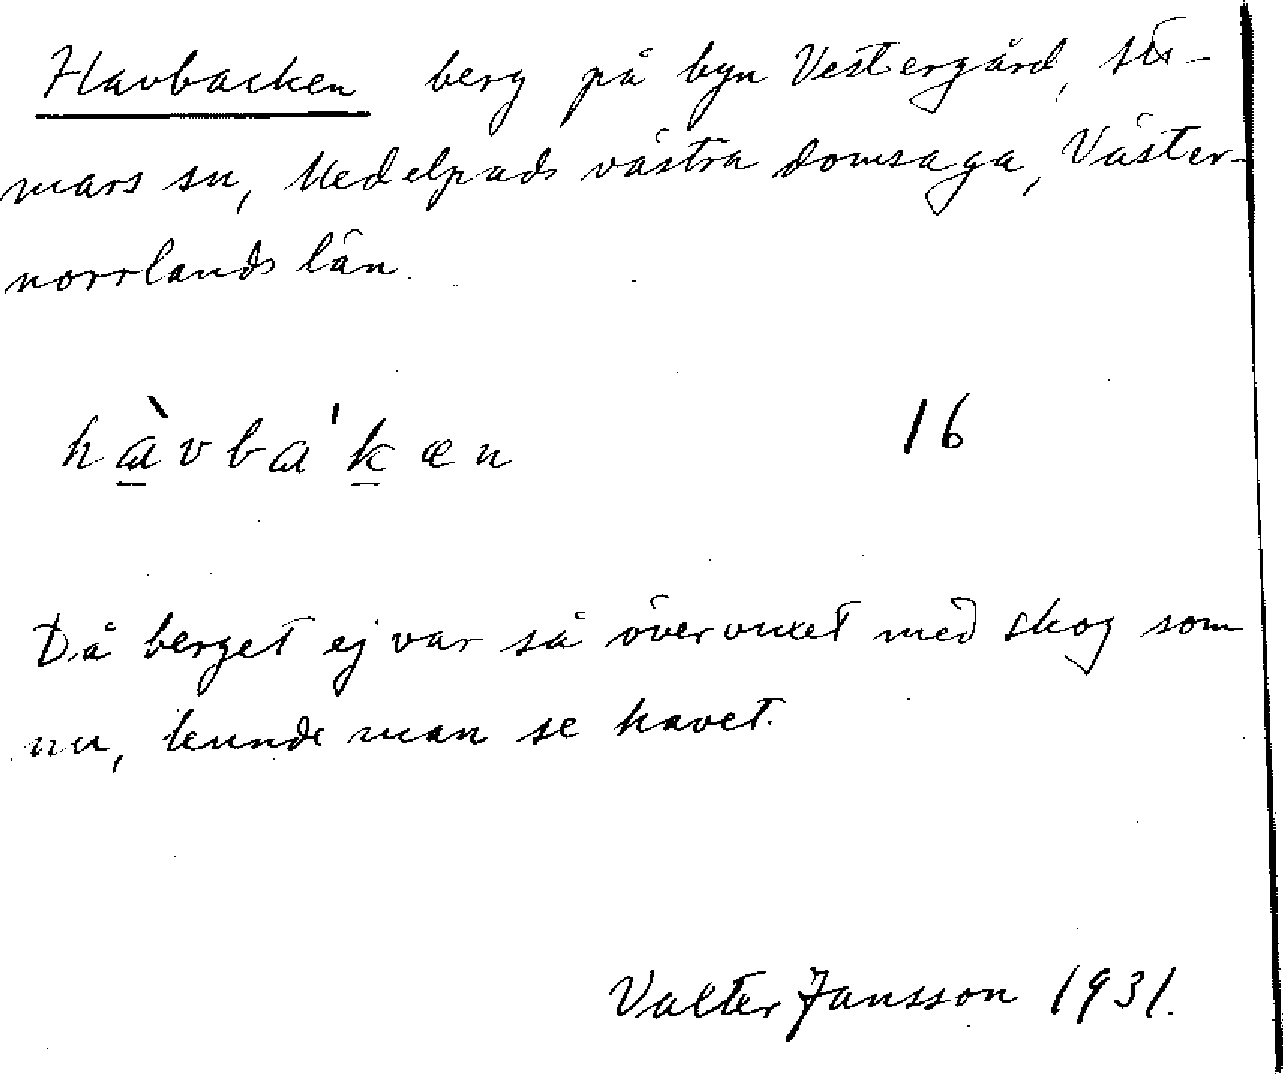 Havbacken berg på byn Västergård, Stö-
mars sn, Medelpads västra domsaga, Väster-
norrlands län.
hàvba'kæn 16
Då berget ej var så övervuxet med skog som
nu, kunde man se havet.
Valter Jansson 1931.